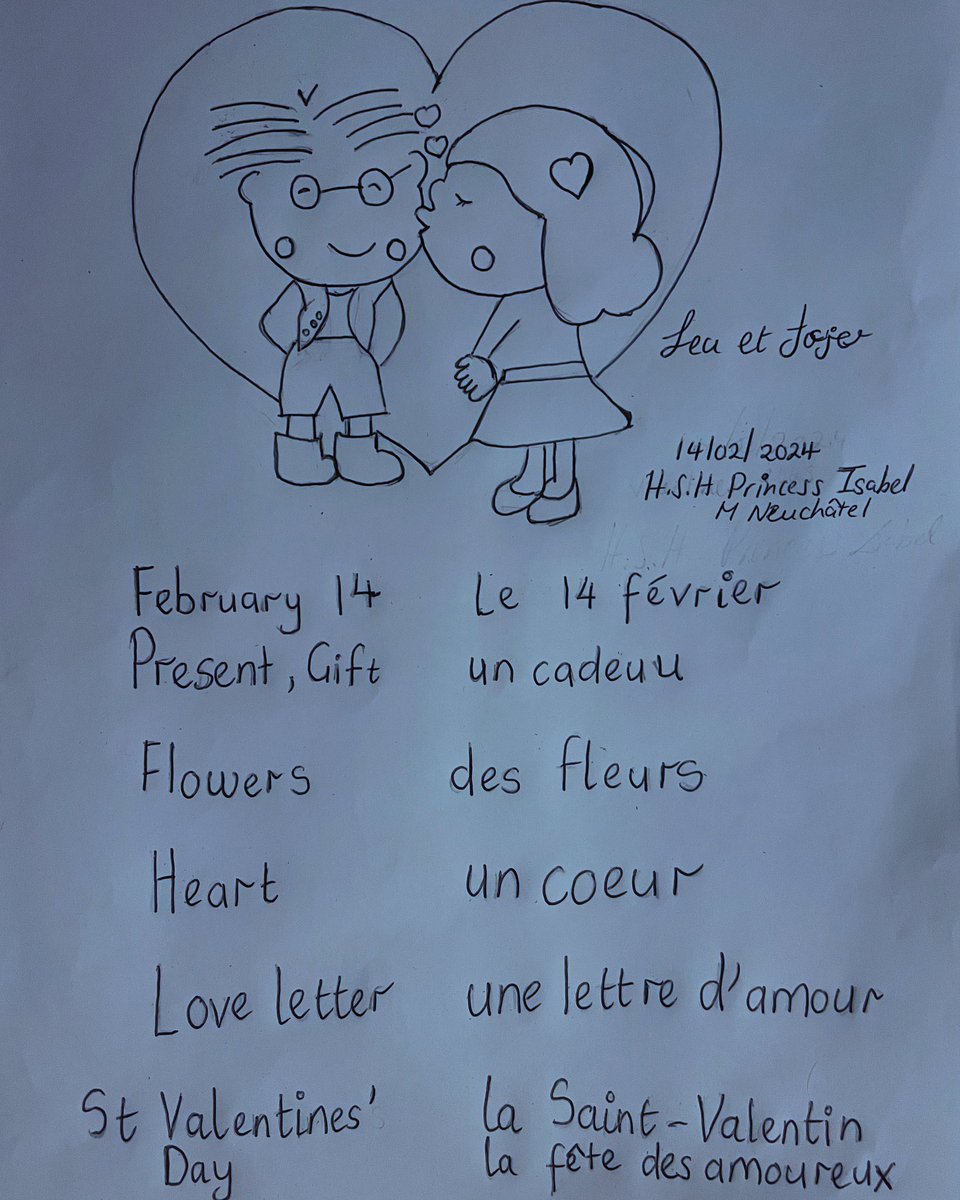 Leu et Jojer
14/02/2024
H.S.H Princess Isabel
M Neuchâtel
February 14 Le 14 février
Present, Gift un cadeuu
Flowers des fleurs
Heart un coeur
Love letter une lettre d'amour
St Valentines' la Saint-Valentin
Day la fête des amoureux